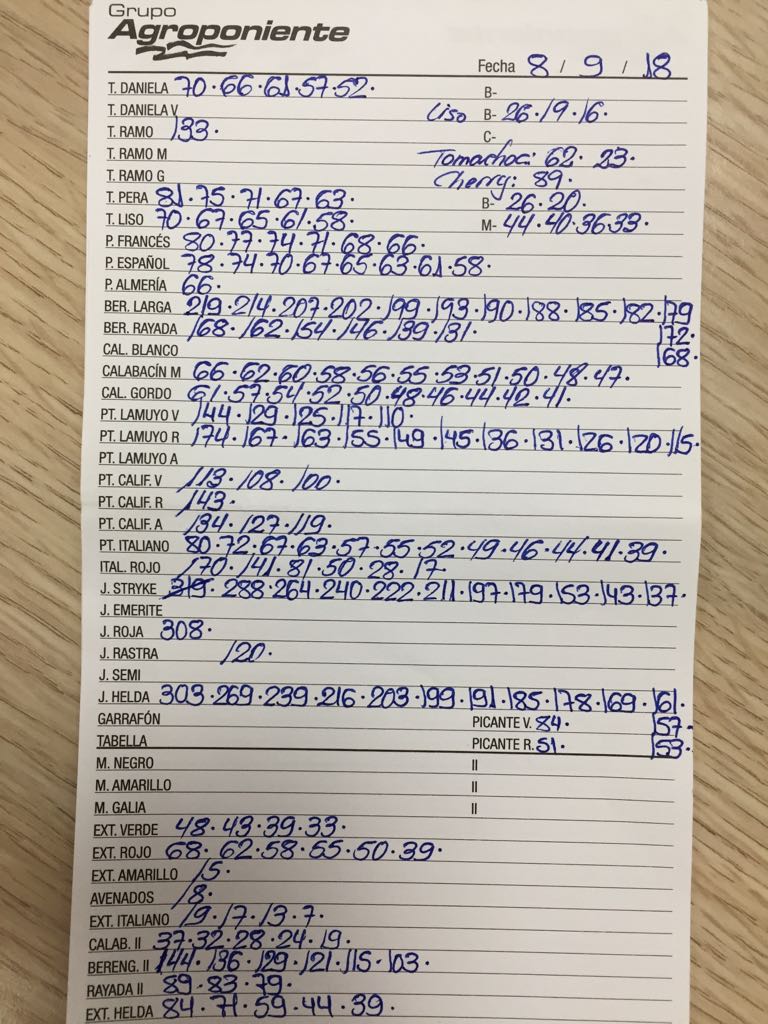 Grupo
Agroponiente
Fecha 8 / 9 / 18
T. DANELA 70·66·61·57·52· B-
T. DANIELA V Liso B- 26·19·16·
T. RAMO 133· C-
T. RAMO M Tomachoc: 62· 23·
T. RAMO G Cherry: 89·
T. PERA 81·75·71·67·63· B- 26·20·
T. LISO 70·67·65·61·58· M- 44·40·36·33·
P. FRANCÉS 80·77·74·71·68·66·
P. ESPAÑOL 78·74·70·67·65·63·61·58·
P. ALMERÍA 66·
BER. LARGA 219·214·207·202·199·193·190·188·185·182·179
BER. RAYADA 168·162·154·146·139·131· 172·
CAL. BLANCO 168·
CALABACÍN M 66·62·60·58·56·55·53·51·50·48·47·
CAL. GORDO 61·57·54·52·50·48·46·44·42·41·
PT. LAMUYO V 144·129·125·117·110·
PT. LAMUYO R 174·167·163·155·149·145·136·131·126·120·115·
PT. LAMUYO A
PT. CALIF. V 113·108·100·
PT. CALIF. R 143·
PT. CALIF. A 134·127·119·
PT. ITALIANO 80·72·67·63·57·55·52·49·46·44·41·39·
ITAL. ROJO 170·141·81·50·28·17
J. STRYKE 319· 288·264·240·222·211·197·179·153·143·137·
J. EMERITE
J. ROJA 308·
J. RASTRA 120·
J. SEMI
J. HELDA 303·269·239·216·203·199·191·185·178·169·161·
GARRAFÓN PICANTE V. 84· 157·
TABELLA PICANTE R. 51· 153·
M. NEGRO II
M. AMARILLO II
M. GALIA II
EXT. VERDE 48·43·39·33·
EXT. ROJO 68·62·58·55·50·39·
EXT. AMARILLO 15·
AVENADOS 18·
EXT. ITALIANO 19·17·13·7·
CALAB. II 37·32·28·24·19·
BERENG. II 144·136·129·121·115·103·
RAYADA II 89·83·79·
EXT. HELDA 84·71·59·44·39·